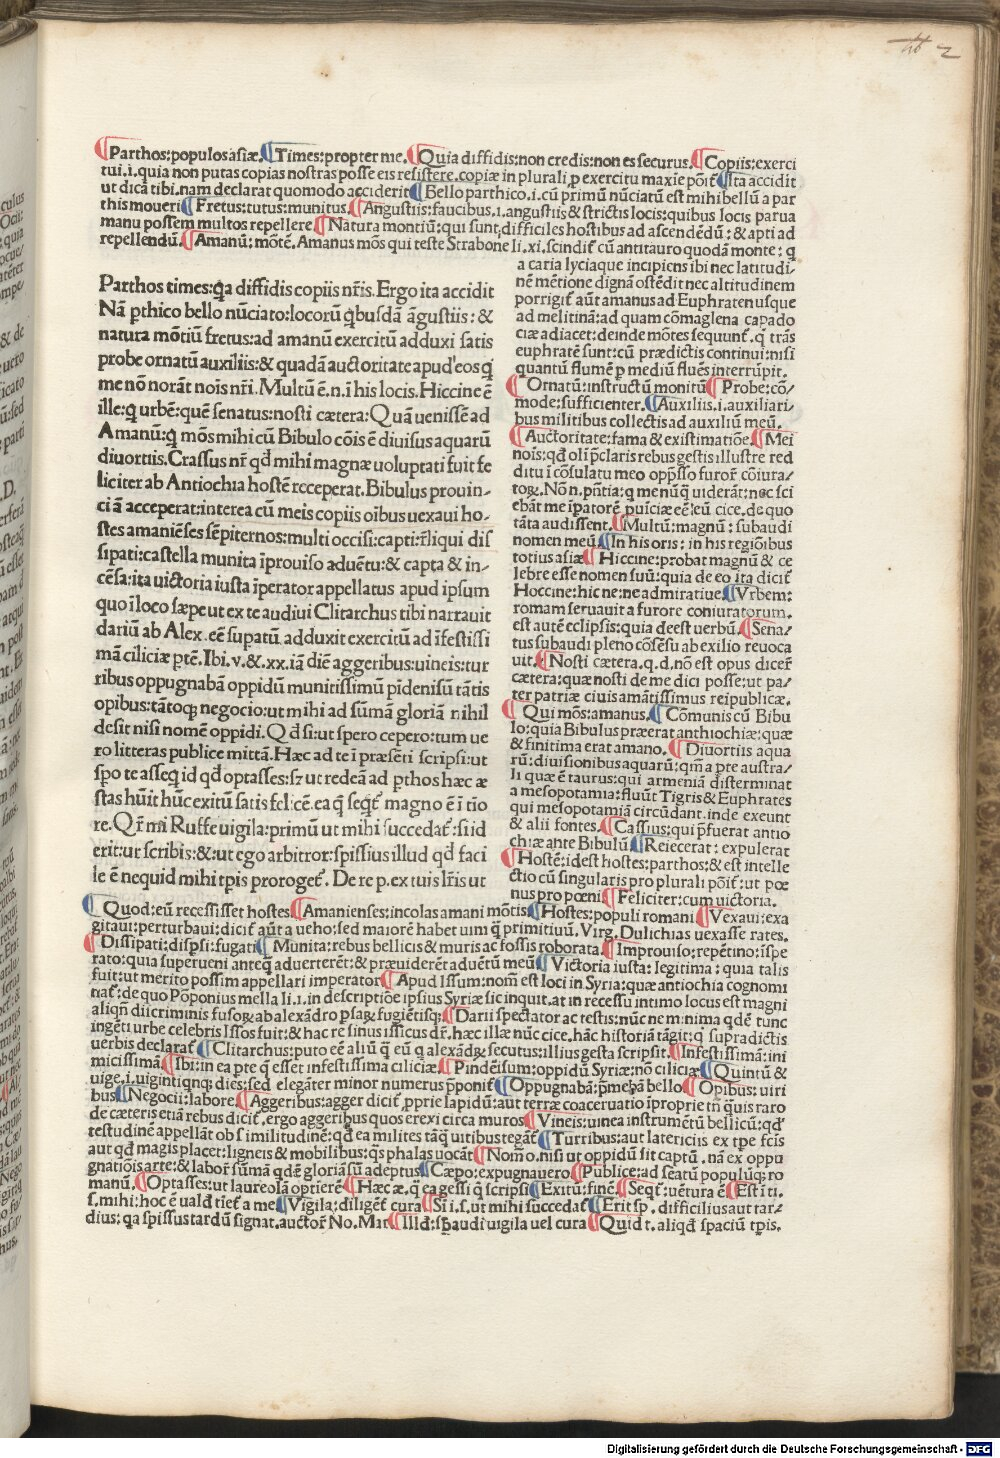 Parthos:populos asiæ. Times:propter me. Quia diffidis:non credis:non es securus. Copiis:exerci
tui.i.quia non putas copias nostras posse eis resistere.copiæ in plurali ꝓ exercitu maxĩe põit̃ Ita accidit
ut dicã tibi.nam declarat quomodo acciderit Bello parthico.i.cũ primũ nũciatũ est mihi bellũ a par
this moueri Fretus:tutus:munitus. Angustiis:faucibus.i.angustiis & strictis locis:quibus locis parua
manu possem multos repellere. Natura montiũ:qui sunt difficiles hostibus ad ascendẽdũ:& apti ad
repellendũ. Amanũ:mõtẽ.Amanus mõs qui teste Strabone li.xi.scindit̃ cũ antitauro quodã monte:q
a caria lyciaque incipiens ibi nec latitudi-
nẽ mẽtione dignã ostẽdit nec altitudinem
porrigit̃ aũt amanus ad Euphraten usque
ad melitinã:ad quam cõmaglena capado
ciæ adiacet:deinde mõtes sequunt̃.q̃ trãs
euphratẽ sunt:cũ prædictis continui:nisi
quantũ flumẽ ꝑ mediũ fluẽs interrũpit.
Ornatũ:instructũ monitũ Probe:cõ/
mode:sufficienter. Auxiliis.i.auxiliari-
bus militibus collectis ad auxiliũ meũ.
Auctoritate:fama & existimatiõe. Mei
nois:qđ oli p̃claris rebus gestis illustre red
ditu i cõsulatu meo opp̃sso furor̃ cõiura-
toꝝ.Nõ n.pñtia:q me nũq̃ uiderãt:nec sci
ebãt me ip̃atorẽ puĩciæ eẽ:cũ cice.de quo
tãta audissent. Multũ:magnũ:subaudi
nomen meũ. In his oris:in his regiõibus
totius asiæ Hiccine:probat magnũ & ce
lebre esse nomen suũ:quia de eo ita dicit̃
Hoccine:hic ne:ne admiratiue Vrbem:
romam seruauit a furore coniuratorum.
est autẽ eclipsis:quia deest uerbũ. Sena-
tus subaudi pleno cõsẽsu ab exilio reuoca
uit. Nosti cætera.q.d.nõ est opus dicer̃
cætera:quæ nosti de me dici posse:ut pa/
ter patriæ ciuis amãtissimus reipublicæ.
Qui mõs:amanus. Cõmunis cũ Bibu
lo:quia Bibulus præerat anthiochiæ:quæ
& finitima erat amano. Diuortiis aqua
rũ:diuisionibus aquarũ:qm̃ a ꝑte austra/
li quæ ẽ taurus:qui armeniã disterminat
a mesopotamia:fluũt Tigris & Euphrates
qui mesopotamiã circũdant.inde exeunt
& alii fontes. Cassius:qui p̃fuerat antio
chiæ ante Bibulũ Reiecerat:expulerat
Hostẽ:idest hostes:parthos:& est intelle
ctio cũ singularis pro plurali põit̃:ut pœ
nus pro pœni Feliciter:cum uictoria.
Parthos times:q̃a diffidis copiis nr̃is.Ergo ita accidit
Nã ꝑthico bello nũciato:locorũ q̃busdã ãgustiis:&
natura mõtiũ fretus:ad amanũ exercitũ adduxi satis
probe ornatũ auxiliis:& quadã auctoritate apud eos q̃
me nõ norãt nois nr̃i.Multũ ẽ.n.i his locis.Hiccine ẽ
ille:q̃ urbẽ:quẽ senatus:nosti cætera:Quã uenissẽ ad
Amanũ:q̃ mõs mihi cũ Bibulo cõis ẽ diuisus aquarũ
diuortiis.Crassus nr̃ qđ mihi magnæ uoluptati fuit fe
liciter ab Antiochia hostẽ receperat.Bibulus prouin-
ciã acceperat:interea cũ meis copiis oĩbus uexaui ho-
stes amaniẽses sẽpiternos:multi occisi:capti:r̃liqui dis
sipati:castella munita ĩprouiso aduẽtu:& capta & in-
cẽsa:ita uictoria iusta ĩperator appellatus apud ipsum
quo ĩ loco sæpe ut ex te audiui Clitarchus tibi narrauit
dariũ ab Alex.eẽ supatũ.adduxit exercitũ ad ĩfestissi
mã ciliciæ ꝑtẽ.Ibi.v.&.xx.iã diẽ aggeribus:uineis:tur
ribus oppugnabã oppidũ munitissimũ pĩdenisũ tãtis
opibus:tãtoq; negocio:ut mihi ad sũmã gloriã nihil
desit nisi nomẽ oppidi.Qđ si:ut spero cepero:tum ue
ro litteras publice mittã.Hæc ad te ĩ præsẽti scripsi:ut
sp̃o te asseq̃ id qđ optasses:sꝫ ut redeã ad ꝑthos hæc æ
stas hũit hũc exitũ satis felicẽ.ea q̃ seqt̃ magno ẽ ĩ tĩo
re.Qr̃ mi Ruffe uigila:primũ ut mihi succedat̃:si id
erit:ut scribis:&:ut ego arbitror:spissius illud qđ faci
le ẽ nequid mihi tp̃is proroget̃.De re p.ex tuis lr̃is ut
Quod:eũ recessisset hostes Amanienses:incolas amani mõtis Hostes:populi romani Vexaui:exa
gitaui:perturbaui:dicit̃ aũt a ueho:sed maiorẽ habet uim q̃ primitiuũ.Virg.Dulichias uexasse rates.
Dissipati:disp̃si:fugati Munita:rebus bellicis & muris ac fossis roborata. Improuiso:repẽtino:ĩspe
rato:quia superueni anteq̃ aduerterẽt:& præuiderẽt aduẽtũ meũ Victoria iusta:legitima:quia talis
fuit:ut merito possim appellari imperator Apud Issum:nom̃ est loci in Syria:quæ antiochia cognomi
nat̃:de quo Põponius mella li.i.in descriptiõe ipsius Syriæ sic inquit.at in recessu intimo locus est magni
aliqñ discriminis fusoꝝ ab alexãdro p̃saꝝ fugiẽtisq; Darii spectator ac testis:nũc ne m̃nima qdẽ tunc
ingẽti urbe celebris Issos fuit:& hac re sinus issicus dr̃.hæc illæ nũc cice.hãc historiã tãgit:q̃ supradictis
uerbis declarat̃ Clitarchus:puto eẽ aliũ q̃ eũ q alexãdꝝ secutus:illius gesta scripsit. Infestissimã:ini
micissimã Ibi:in ea pte q̃ esset infestissima ciliciæ Pindẽisum:oppidũ Syriæ:nõ ciliciæ Quintũ &
uige.i.uigintiqnq; dies:sed elegãter minor numerus p̃ponit̃ Oppugnabã:p̃mebã bello Opibus:uiri
bus Negocii:labore Aggeribus:agger dicit̃ ꝓprie lapidũ:aut terræ coaceruatio ĩproprie tñ quis raro
de cæteris etiã rebus dicit̃.ergo aggeribus quos erexi circa muros Vineis:uinea instrumẽtũ bellicũ:qđ
testudinẽ appellãt ob similitudinẽ:qđ ea milites tãq̃ uitibus tegãt̃ Turribus:aut latericiis ex tp̃e fc̃is
aut qđ magis placet:ligneis & mobilibus:q̃s phalas uocãt Nom̃ o.nisi ut oppidũ sit captũ.nã ex oppu
gnatiõis arte:& labor̃ sũmã qdẽ gloriã sũ adeptus Cæpo:expugnauero Publice:ad sẽatũ populũq; ro
manũ. Optasses:ut laureolã optiere Hæc æ.q̃ ea gessi q̃ scripsi Exitũ:finẽ. Seqt̃:uẽtura ẽ Est ĩ ti.
s.mihi:hoc ẽ uald̃ tiet̃ a me Vigila:diligẽt̃ cura Si i.s.ut mihi succedat̃ Erit sp.difficilius aut tar/
dius:q̃a spissus tardũ signat.auctor̃ No.Mar Illd̃:s̃baudi uigila uel cura Quid t.aliqđ spaciũ tp̃is.
Digitalisierung gefördert durch die Deutsche Forschungsgemeinschaft - DFG